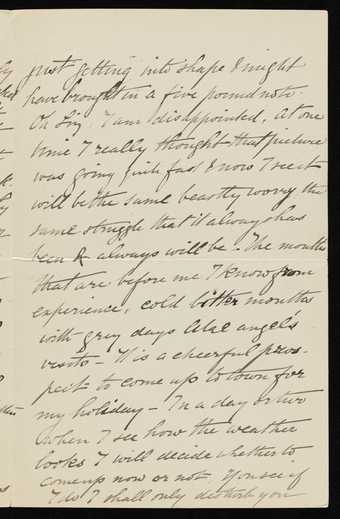 just getting into shape & might
have brought in a five pound note.
Oh Liz. I am disappointed, at one
time I really thought that picture
was going quite fast & now I see it
will be the same beastly worry the
same struggle that it always has
been & always will be. The months
that are before me I know from
experience, cold bitter months
with grey days like angel's
visits - It is a cheerful pros-
pect to come up to town for
my holiday - In a day or two
when I see how the weather
looks I will decide whether to
come up now or not. You see if
I do I shall only disturb you